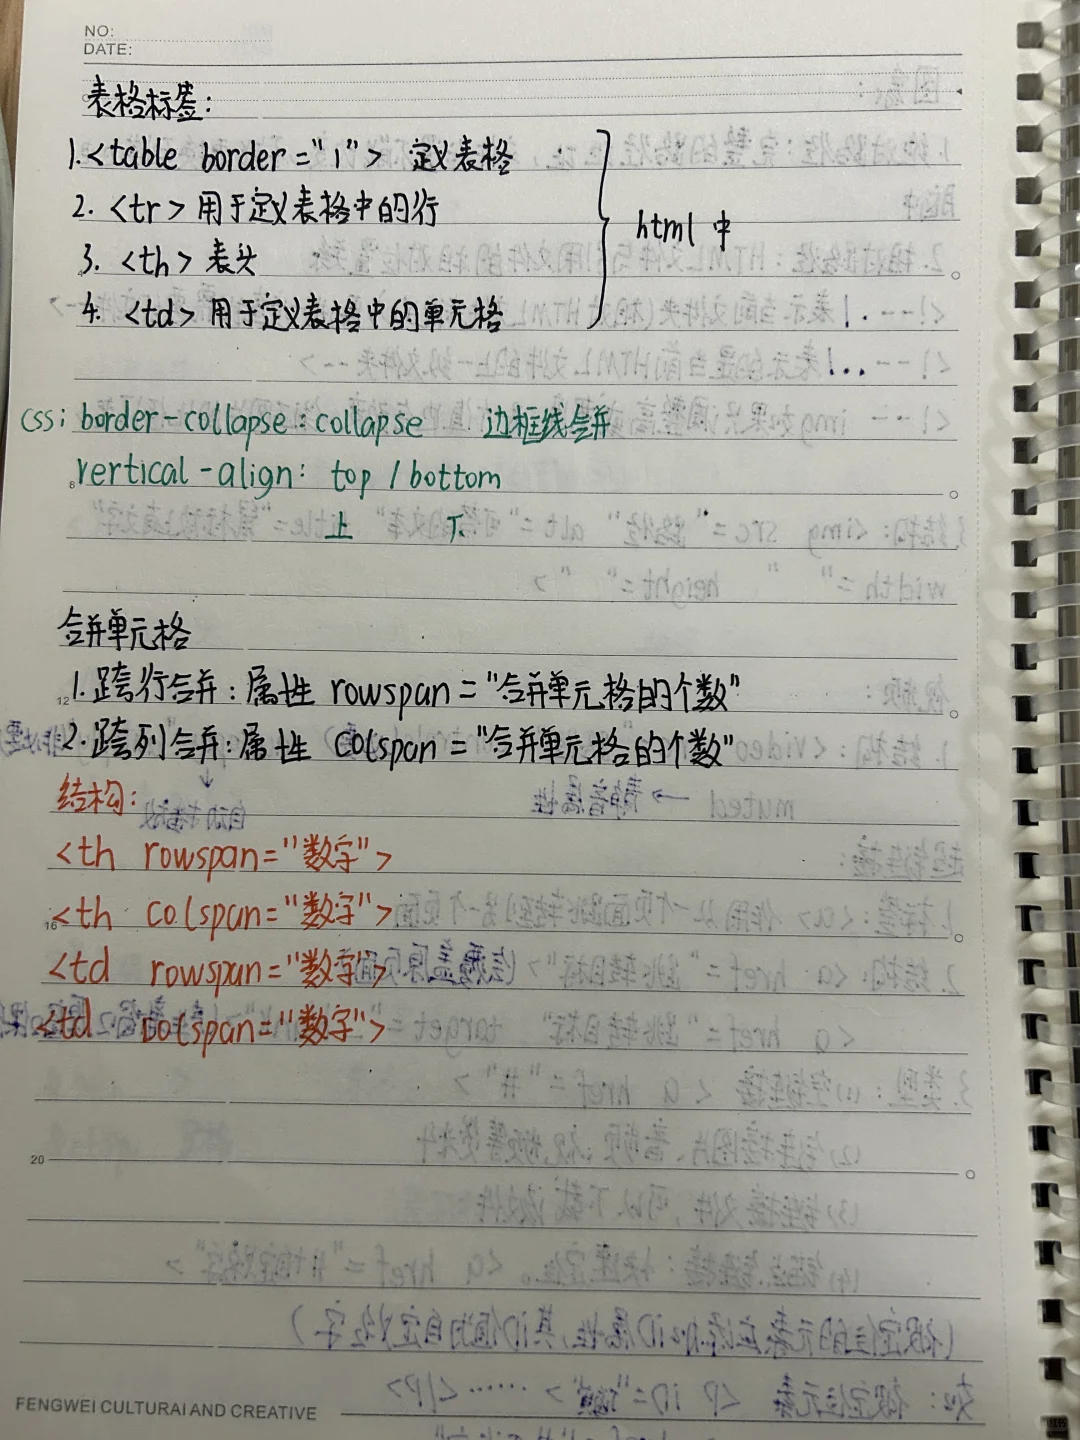 NO:
DATE:
表格标签:
1.<table border="1"> 定义表格
2. <tr> 用于定义表格中的行
3. <th> 表头
4. <td> 用于定义表格中的单元格
html 中
css: border-collapse: collapse 边框线合并
8 vertical-align: top / bottom
上 下
合并单元格
12 1. 跨行合并: 属性 rowspan="合并单元格的个数"
2. 跨列合并: 属性 colspan="合并单元格的个数"
结构:
<th rowspan="数字">
16 <th colspan="数字">
<td rowspan="数字">
<td colspan="数字">
20
FENGWEI CULTURAI AND CREATIVE